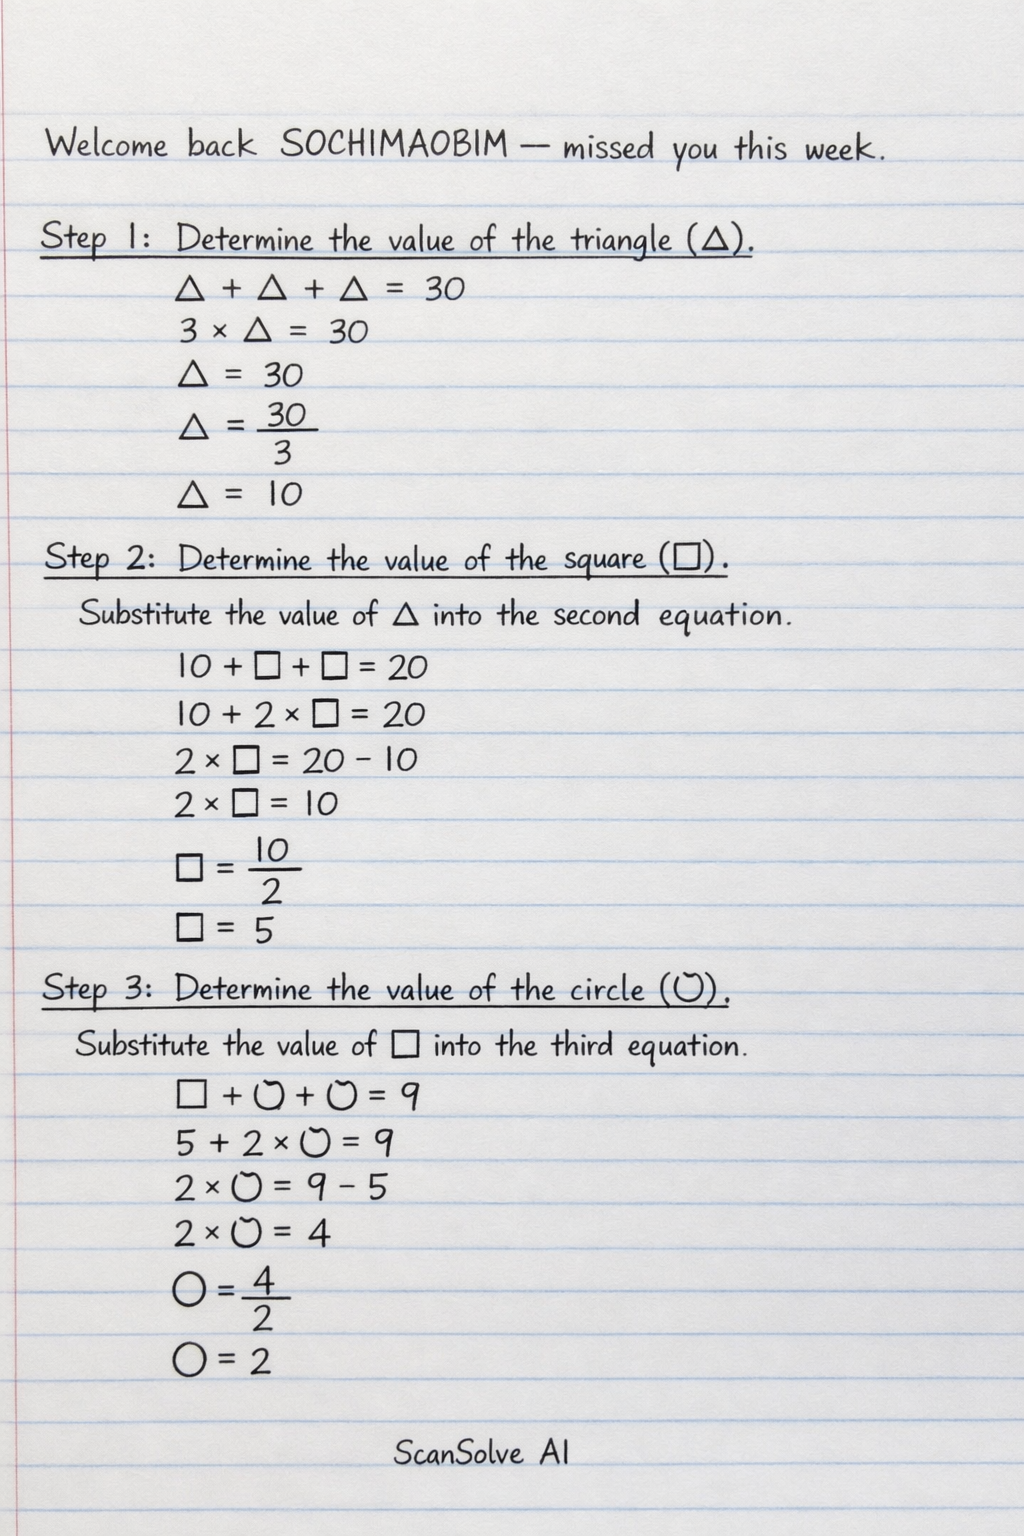 Welcome back SOCHIMAOBIM — missed you this week.
Step 1: Determine the value of the triangle (△).
△ + △ + △ = 30
3 × △ = 30
△ = 30
△ = 30/3
△ = 10
Step 2: Determine the value of the square (□).
Substitute the value of △ into the second equation.
10 + □ + □ = 20
10 + 2 × □ = 20
2 × □ = 20 − 10
2 × □ = 10
□ = 10/2
□ = 5
Step 3: Determine the value of the circle (○).
Substitute the value of □ into the third equation.
□ + ○ + ○ = 9
5 + 2 × ○ = 9
2 × ○ = 9 − 5
2 × ○ = 4
○ = 4/2
○ = 2
ScanSolve AI